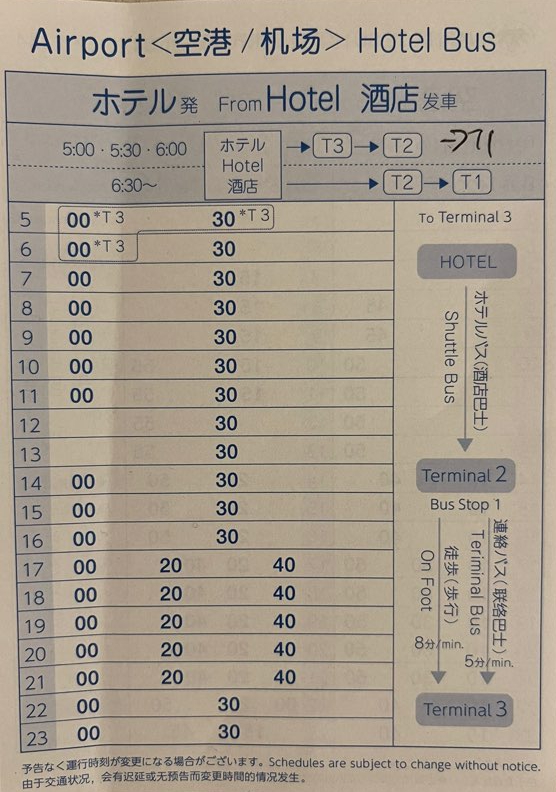 Airport<空港 / 机场> Hotel Bus
ホテル発 From Hotel 酒店发车
5:00・5:30・6:00 ホテル Hotel 酒店 → T3 → T2
6:30～ → T2 → T1
5 00*T3 30*T3
6 00*T3 30
7 00 30
8 00 30
9 00 30
10 00 30
11 00 30
12 30
13 30
14 00 30
15 00 30
16 00 30
17 00 20 40
18 00 20 40
19 00 20 40
20 00 20 40
21 00 20 40
22 00 30
23 00 30
To Terminal 3
HOTEL
ホテルバス(酒店巴士)
Shuttle Bus
Terminal 2
Bus Stop 1
連絡バス(联络巴士)
Teriminal Bus
5分/min.
徒歩(步行)
On Foot
8分/min.
Terminal 3
予告なく運行時刻が変更になる場合がございます。Schedules are subject to change without notice.
由于交通状况，会有迟延或无预告而变更時間的情况发生。